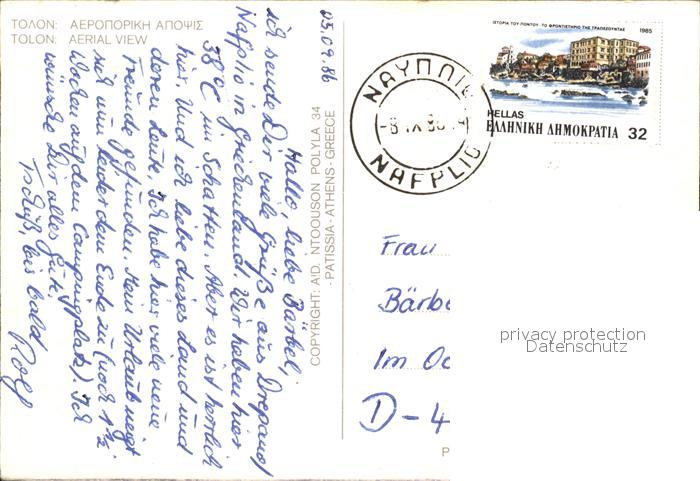 ΤΟΛΟΝ: ΑΕΡΟΠΟΡΙΚΗ ΑΠΟΨΙΣ
TOLON: AERIAL VIEW
05.09.86
Hallo, liebe Bärbel,
ich sende Dir viele Grüße aus Drepano/
Nafplio in Griechenland. Wir haben hier
38°C im Schatten. Aber es ist herrlich
hier. Und ich liebe dieses Land und
deren Leute. Ich habe hier viele neue
Freunde gefunden. Mein Urlaub neigt
sich nun leider dem Ende zu (noch 1 1/2
Wochen auf dem Campingplatz). Ich
wünsche Dir alles Gute.
Tschüß, bis bald
Rolf
COPYRIGHT: A!D. NTOOUSON POLYLA 34
·PATISSIA·ATHENS·GREECE
ΙΣΤΟΡΙΑ ΤΟΥ ΠΟΝΤΟΥ ΤΟ ΦΡΟΝΤΙΣΤΗΡΙΟ ΤΗΣ ΤΡΑΠΕΖΟΥΝΤΑΣ 1985
HELLAS
ΕΛΛΗΝΙΚΗ ΔΗΜΟΚΡΑΤΙΑ 32
ΝΑΥΠΛΙ
-8 IX 86
NAFPLIO
Frau
Bärbe
Im Oc
D-4
privacy protection
Datenschutz
P